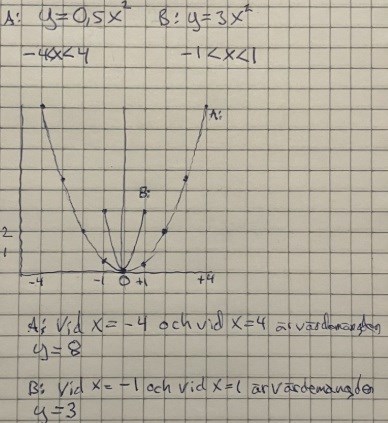 A: y=0,5x² B: y=3x²
-4<x<4 -1<x<1
A:
B:
2
1
-4 -1 0 +1 +4
A: Vid x=-4 och vid x=4 är värdemängden
y=8
B: Vid x=-1 och vid x=1 är värdemängden
y=3